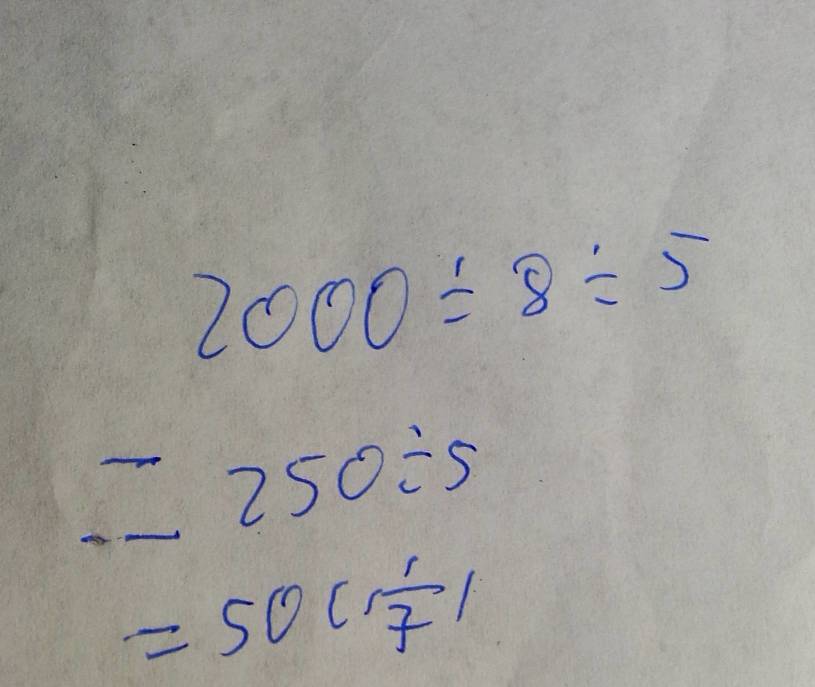 2000÷8÷5
=250÷5
=50(个)